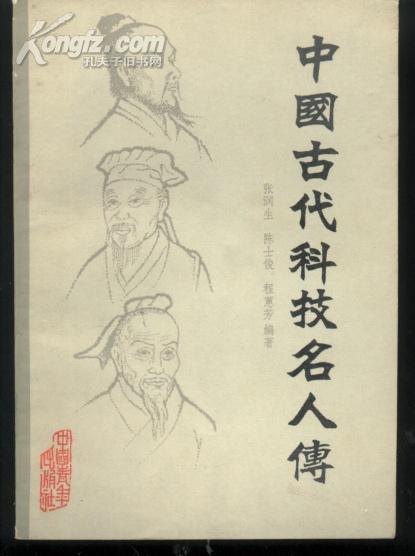 Kongfz.com
孔夫子旧书网
中國古代科技名人傳
张润生 陈士俊 程蕙芳 编著
中国青年
出版社